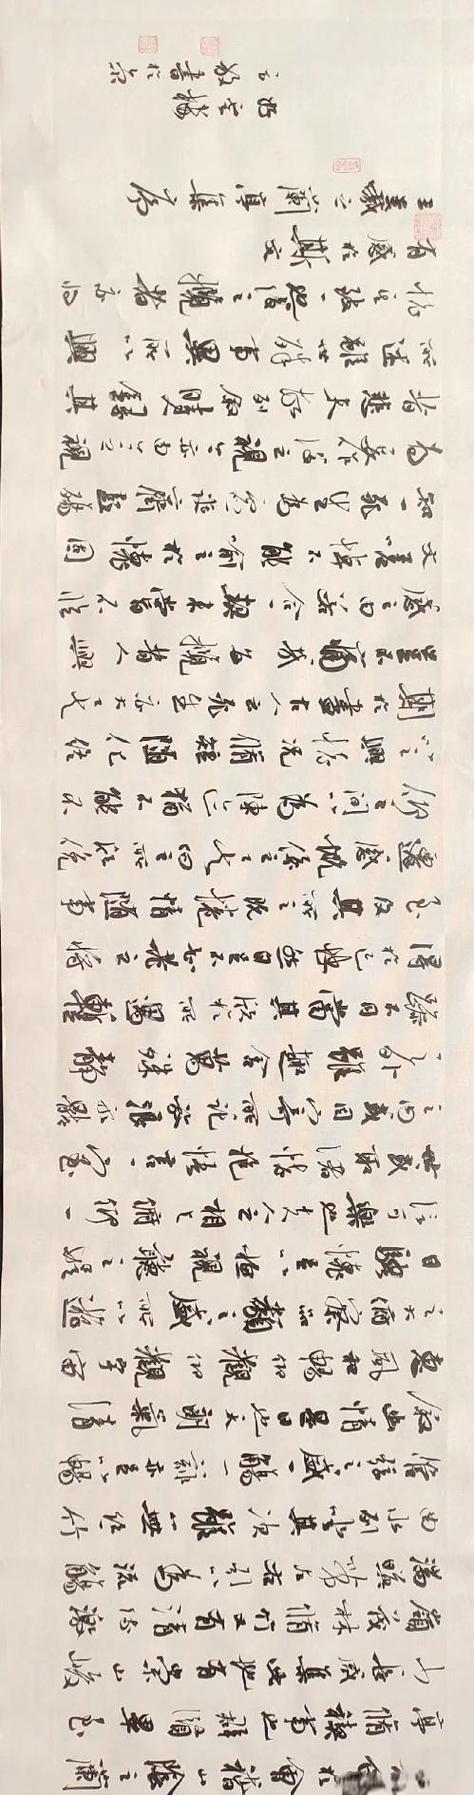 於會稽山陰之蘭
亭脩禊事也群賢畢至
少長咸集此地有崇山峻
嶺茂林脩竹又有清流激
湍暎帶左右引以為流觴
曲水列坐其次雖無絲竹
管弦之盛一觴一詠亦足以暢
叙幽情是日也天朗氣清
惠風和暢仰觀宇宙
之大俯察品類之盛所以遊
目騁懷足以極視聽之娛
信可樂也夫人之相與俯仰一
世或取諸懷抱悟言一室
之內或因寄所託放浪形骸
之外雖趣舍萬殊靜
躁不同當其欣於所遇暫
得於己快然自足不知老之將
至及其所之既惓情隨事
遷感慨係之矣向之所欣俛
仰之間以為陳迹猶不能不
以之興懷況脩短隨化終
期於盡古人云死生亦大矣
豈不痛哉每攬昔人興
感之由若合一契未嘗不臨
文嗟悼不能喻之於懷固
知一死生為虛誕齊彭殤
為妄作後之視今亦由今之視
昔悲夫故列叙時人錄其
所述雖世殊事異所以興
懷其致一也後之攬者亦將
有感於斯文
王羲之蘭亭集序
書於京